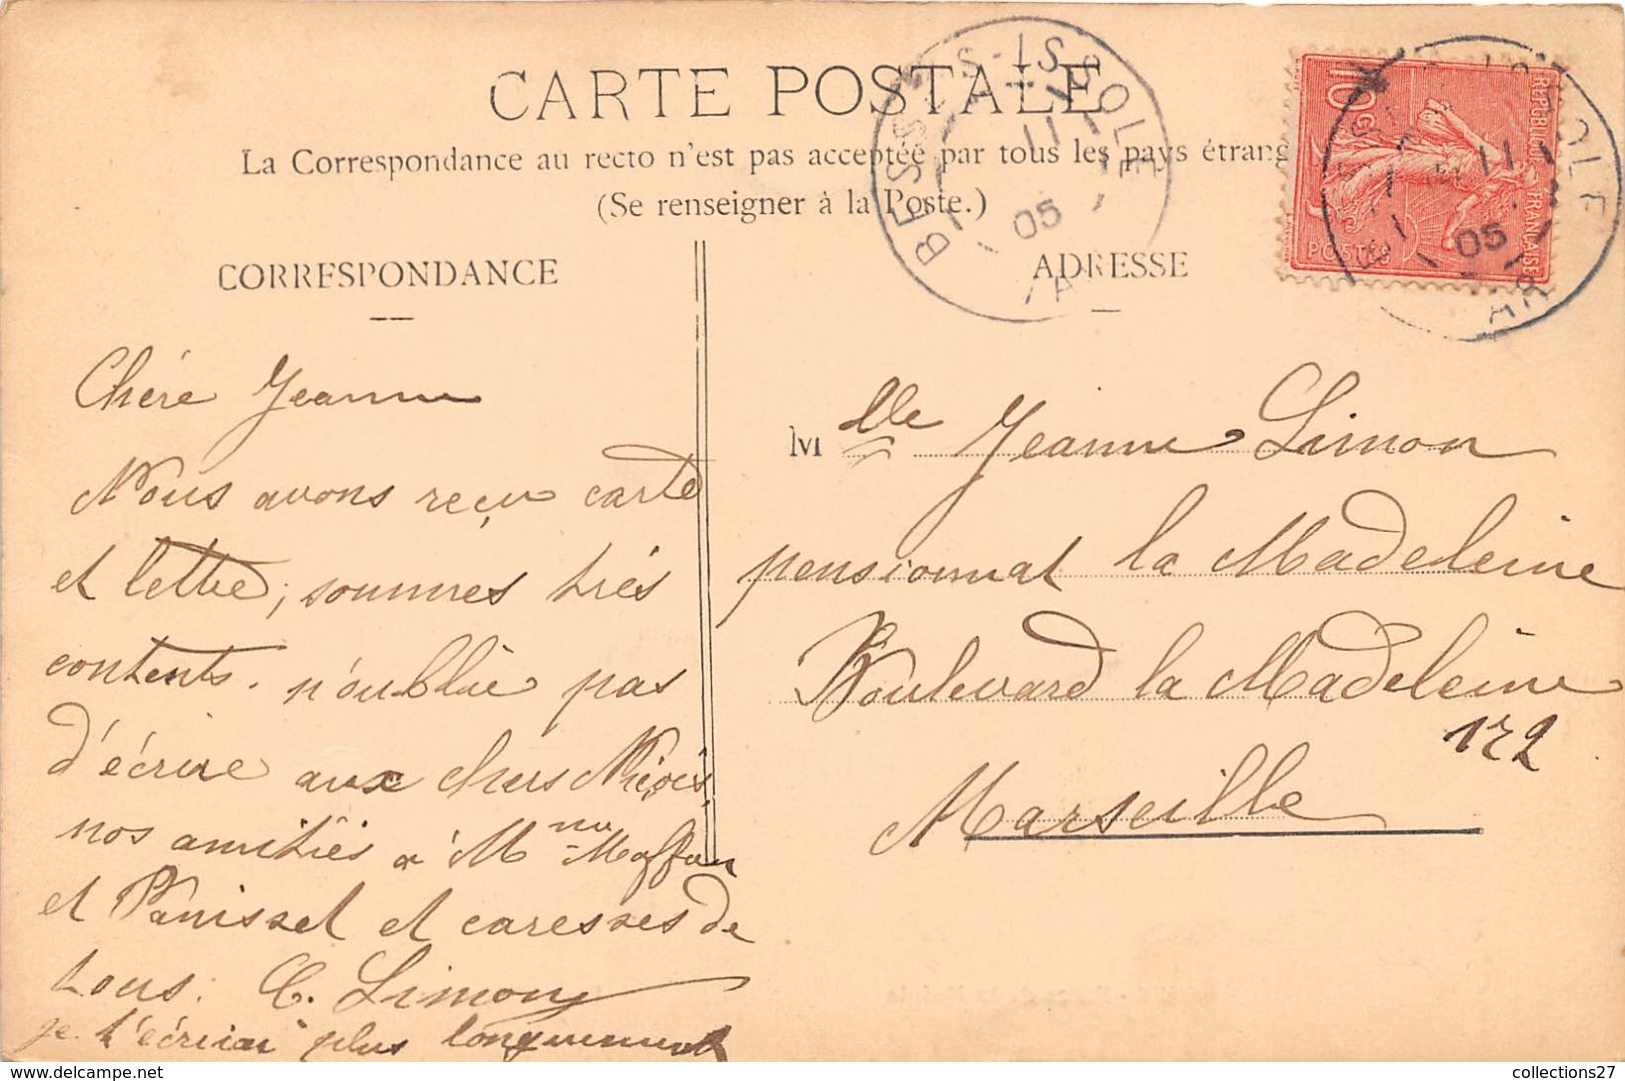 CARTE POSTALE
La Correspondance au recto n'est pas acceptée par tous les pays étrang
(Se renseigner à la Poste.)
BESSE-S-ISSOLE
11
05
10c
REPUBLIQUE FRANÇAISE
POSTES
11
05
VAR
CORRESPONDANCE
Chére Jeanne
Nous avons reçu carte
et lettre, sommes trés
contents. n'oublie pas
d'écrire aux chers Niçois.
nos amitiés a Mme
et Panisset et caresses de
tous. C. Limon
je t'écrirai plus longuement
ADRESSE
Mlle Jeanne Limon
pensionnat la Madeleine
Boulevard la Madeleine
172
Marseille
www.delcampe.net
collections27